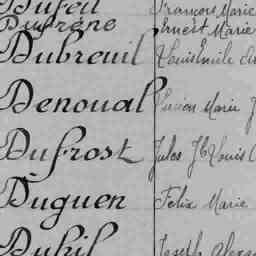 Dufeu François Marie
Dufrêne Ernest Marie
Dubreuil Louis Emile
Denoual Lucien Marie J
Dufrost Jules Jh Louis
Duguen Felix Marie
Duhil Joseph Alexa